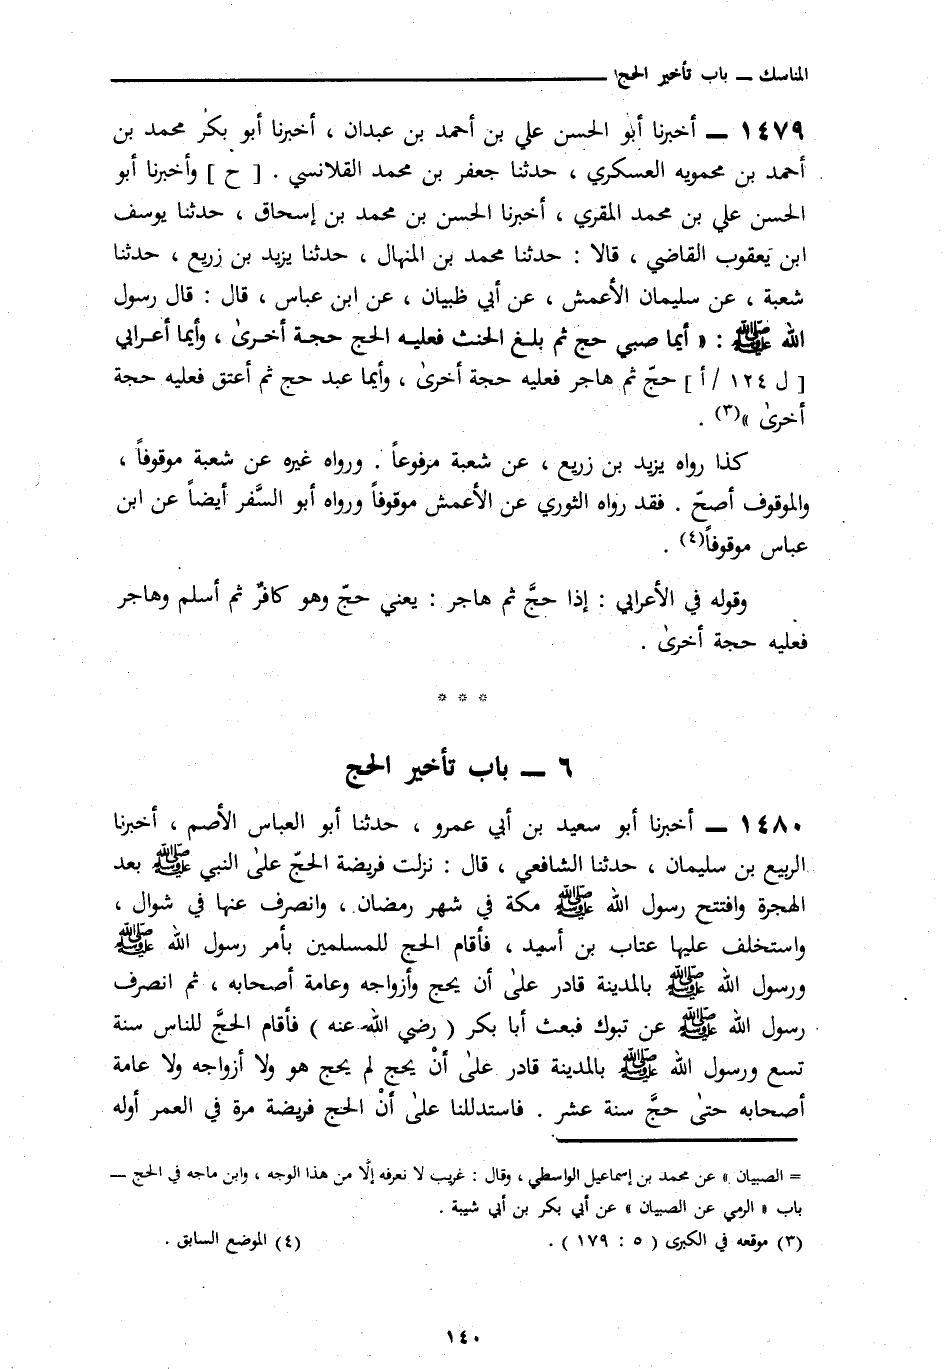 المناسك ــ باب تأخير الحج
١٤٧٩ ــ أخبرنا أبو الحسن علي بن أحمد بن عبدان ، أخبرنا أبو بكر محمد بن
أحمد بن محمويه العسكري ، حدثنا جعفر بن محمد القلانسي . [ ح ] وأخبرنا أبو
الحسن علي بن محمد المقري ، أخبرنا الحسن بن محمد بن إسحاق ، حدثنا يوسف
ابن يعقوب القاضي ، قالا : حدثنا محمد بن المنهال ، حدثنا يزيد بن زريع ، حدثنا
شعبة ، عن سليمان الأعمش ، عن أبي ظبيان ، عن ابن عباس ، قال : قال رسول
الله ﷺ : « أيما صبي حج ثم بلغ الحنث فعليه الحج حجة أخرىٰ ، وأيما أعرابي
[ ل ١٢٤ /أ ] حجّ ثم هاجر فعليه حجة أخرىٰ ، وأيما عبد حج ثم أعتق فعليه حجة
أخرىٰ »(٣) .
كذا رواه يزيد بن زريع ، عن شعبة مرفوعاً . ورواه غيره عن شعبة موقوفاً ،
والموقوف أصحّ . فقد رواه الثوري عن الأعمش موقوفاً ورواه أبو السَّفر أيضاً عن ابن
عباس موقوفاً(٤) .
وقوله في الأعرابي : إذا حجَّ ثم هاجر : يعني حجّ وهو كافرٌ ثم أسلم وهاجر
فعليه حجة أخرىٰ .
* * *
٦ ــ باب تأخير الحج
١٤٨٠ ــ أخبرنا أبو سعيد بن أبي عمرو ، حدثنا أبو العباس الأصم ، أخبرنا
الربيع بن سليمان ، حدثنا الشافعي ، قال : نزلت فريضة الحجّ علىٰ النبي ﷺ بعد
الهجرة وافتتح رسول الله ﷺ مكة في شهر رمضان ، وانصرف عنها في شوال ،
واستخلف عليها عتاب بن أسيد ، فأقام الحج للمسلمين بأمر رسول الله ﷺ
ورسول الله ﷺ بالمدينة قادر علىٰ أن يحج وأزواجه وعامة أصحابه ، ثم انصرف
رسول الله ﷺ عن تبوك فبعث أبا بكر ( رضي الله عنه ) فأقام الحجَّ للناس سنة
تسع ورسول الله ﷺ بالمدينة قادر علىٰ أنْ يحج لم يحج هو ولا أزواجه ولا عامة
أصحابه حتىٰ حجَّ سنة عشر . فاستدللنا علىٰ أنْ الحج فريضة مرة في العمر أوله
= الصبيان » عن محمد بن إسماعيل الواسطي ، وقال : غريب لا نعرفه إلَّا من هذا الوجه ، وابن ماجه في الحج ــ
باب « الرمي عن الصبيان » عن أبي بكر بن أبي شيبة .
(٣) موقعه في الكبرى ( ٥ : ١٧٩ ) . (٤) الموضع السابق .
١٤٠